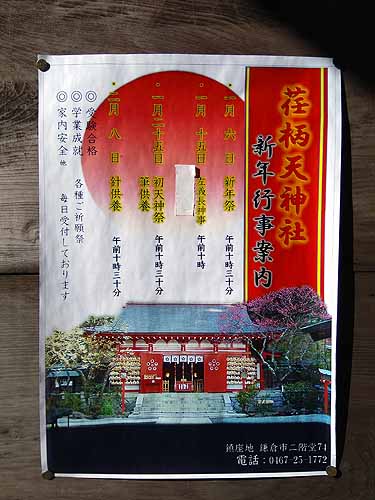 荏柄天神社
新年行事案内
・一月六日 新年祭 午前十時三十分
・一月十五日 左義長神事 午前十時
・一月二十五日 初天神祭 筆供養 午前十時三十分
・二月八日 針供養 午前十時三十分
◎受験合格
◎学業成就
◎家内安全 他
各種ご祈願祭
毎日受付しております
鎮座地 鎌倉市二階堂74
電話：0467-25-1772